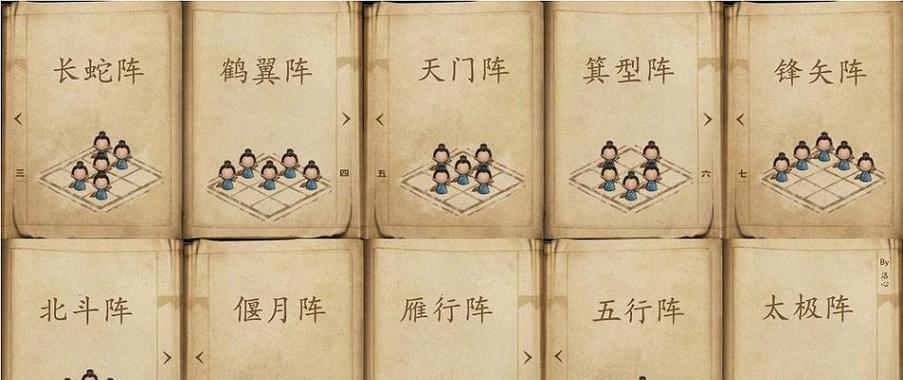 长蛇阵
鹤翼阵
天门阵
箕型阵
锋矢阵
三
四
五
六
七
北斗阵
偃月阵
雁行阵
五行阵
太极阵
By
洛心